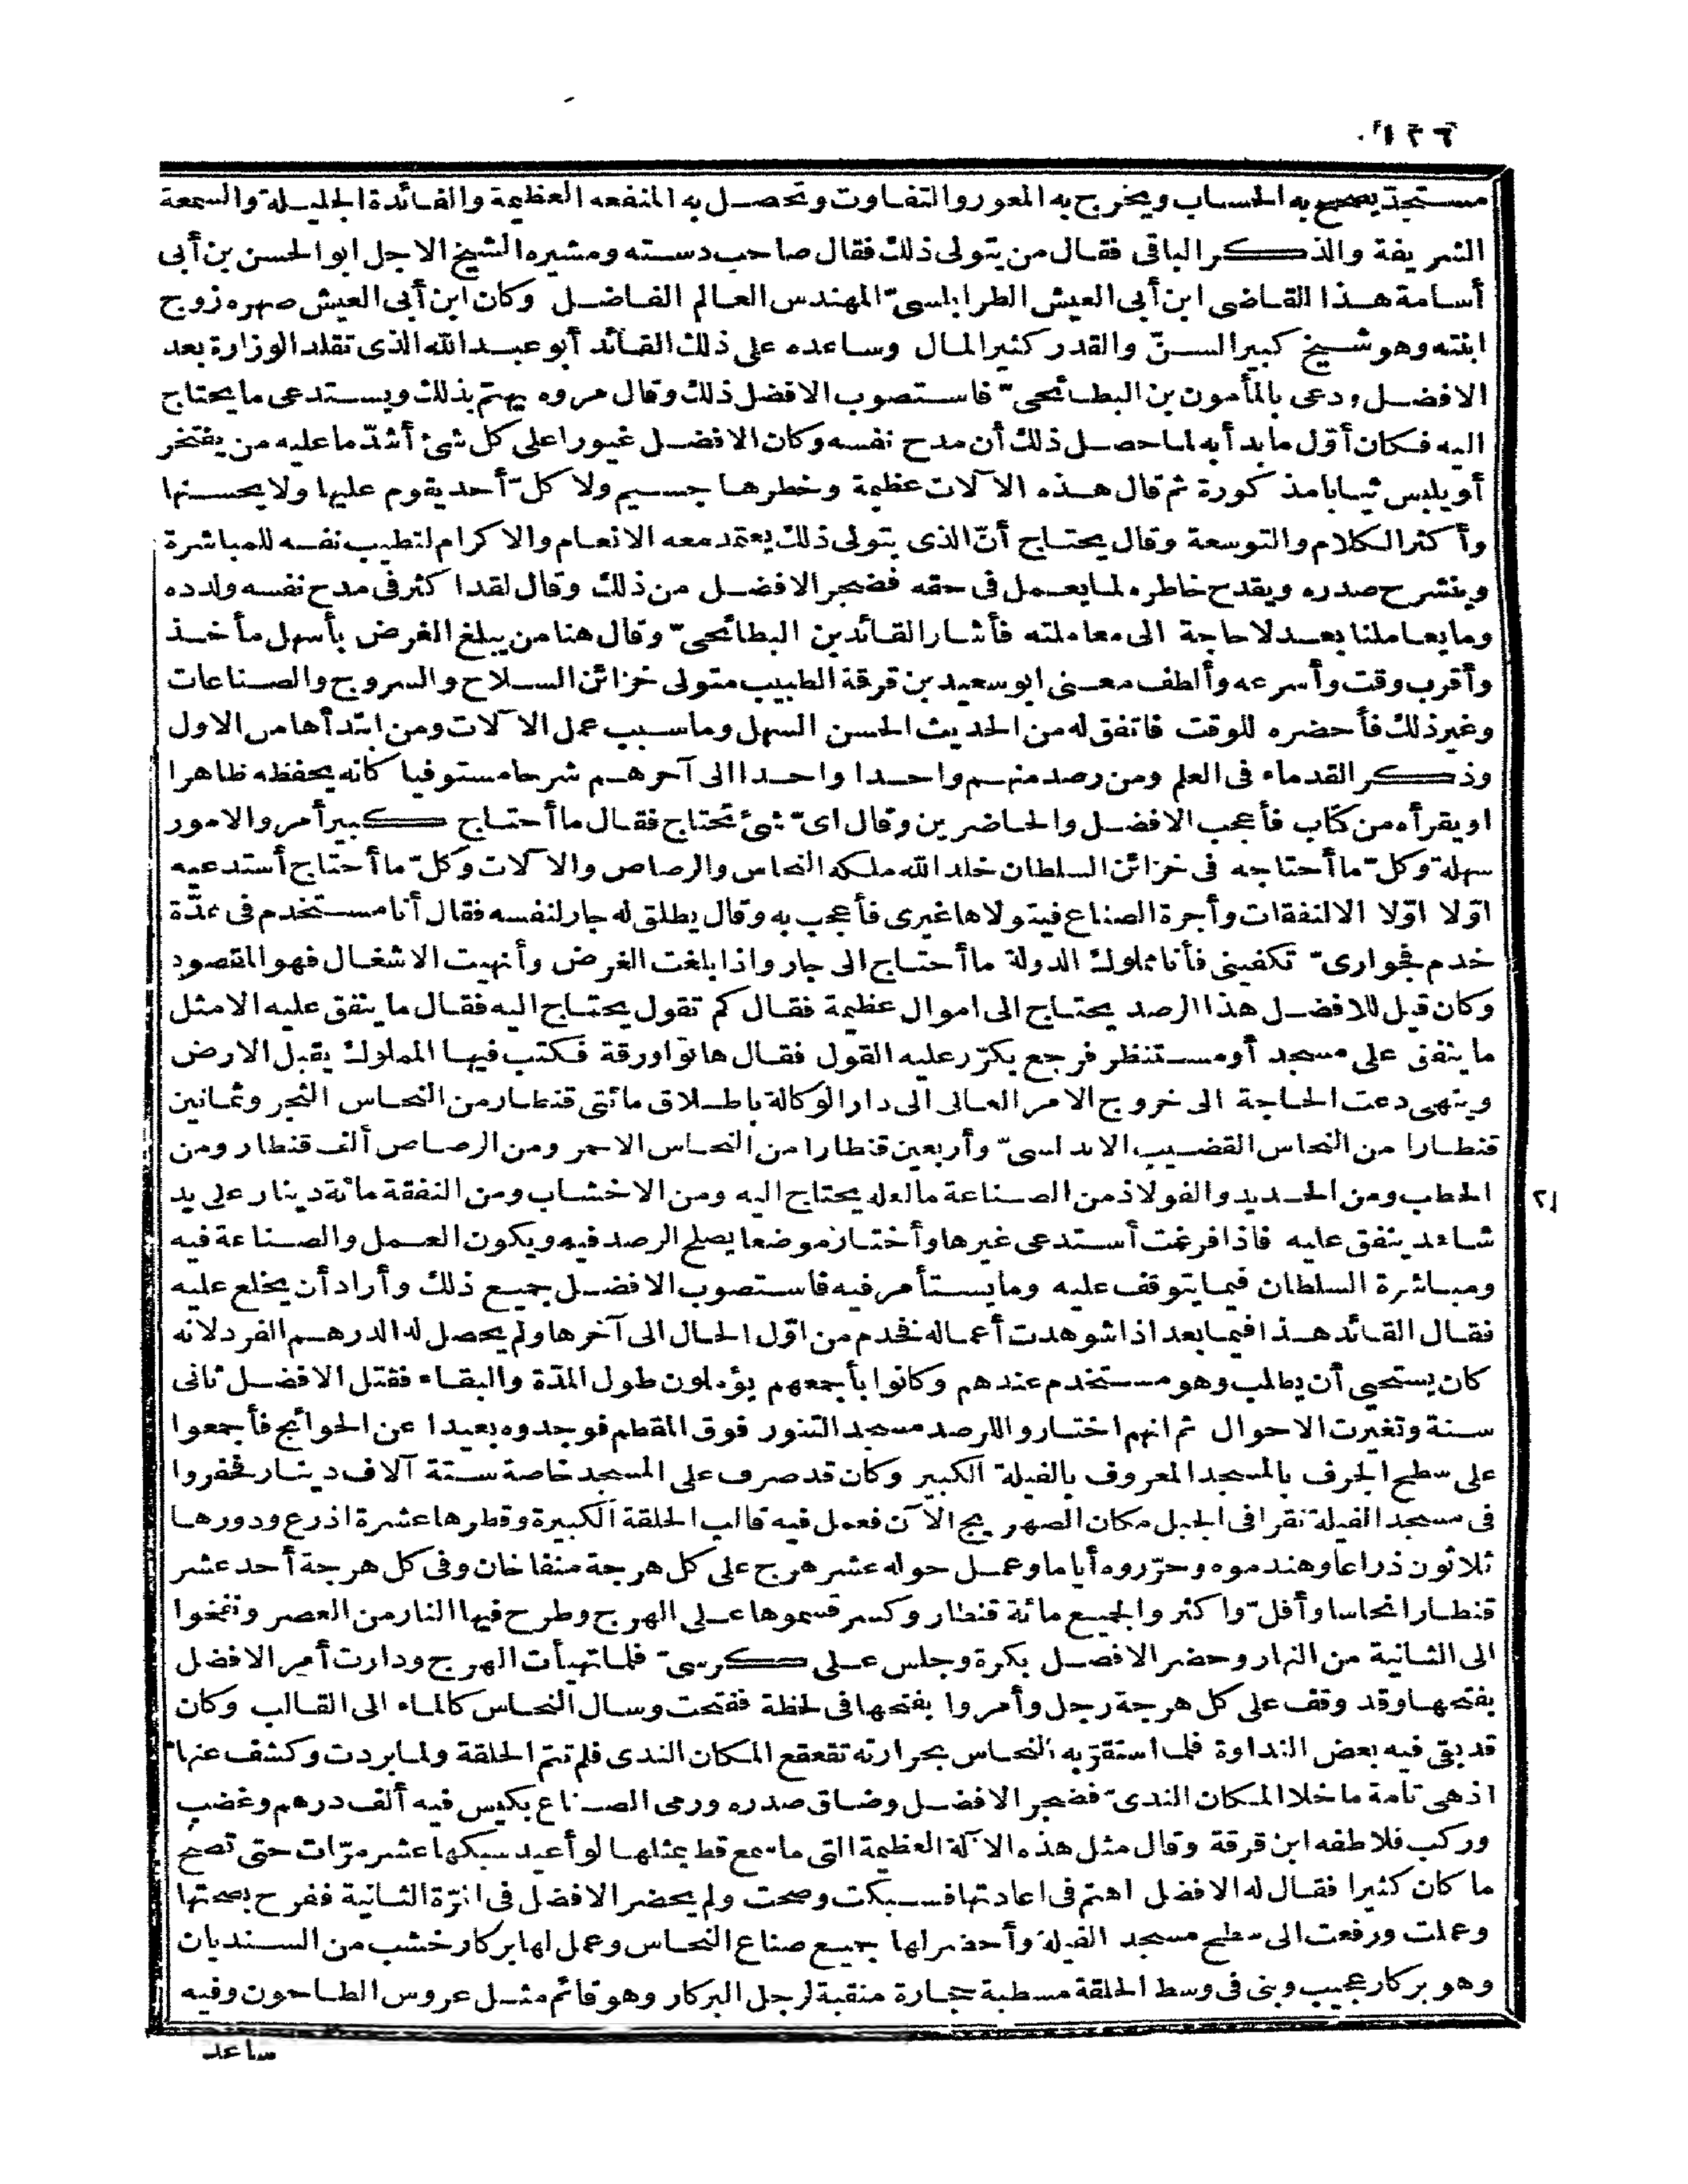 ١٢٦
مستجدّ يصحح به الحساب ويخرج به المعور والتفاوت وتحصل به المنفعه العظيمة والفائدة الجليلة والسمعة
الشريفة والذكر الباقى فقال من يتولى ذلك فقال صاحب دسته ومشيره الشيخ الاجل ابو الحسن بن أبى
أسامة هذا القاضى ابن أبى العيش الطرابلسىّ المهندس العالم الفاضل وكان ابن أبى العيش صهره زوج
ابنته وهو شيخ كبير السنّ والقدر كثير المال وساعده على ذلك القائد أبو عبد الله الذى تقلد الوزارة بعد
الافضل ودعى بالمأمون بن البطائحىّ فاستصوب الافضل ذلك وقال مروه يهتم بذلك ويستدعى ما يحتاج
اليه فكان أوّل ما بدأ به لما حصل ذلك أن مدح نفسه وكان الافضل غيورا على كل شئ أشدّ ما عليه من يفتخر
أو يلبس ثيابا مذكورة ثم قال هذه الآلات عظيمة وخطرها جسيم ولا كلّ أحد يقوم عليها ولا يحسنها
وأكثر الكلام والتوسعة وقال يحتاج أنّ الذى يتولى ذلك يعتمد معه الانعام والاكرام لتطيب نفسه للمباشرة
وينشرح صدره ويقدح خاطره لما يعمل فى حقه فضجر الافضل من ذلك وقال لقد اكثر فى مدح نفسه ولدده
وما يعاملنا بعد لا حاجة الى معاملته فأشار القائد بن البطائحىّ وقال هنا من يبلغ الغرض بأسهل مأخذ
وأقرب وقت وأسرعه وألطف معنى ابو سعيد بن قرقة الطبيب متولى خزائن السلاح والسروج والصناعات
وغير ذلك فأحضره للوقت فاتفق له من الحديث الحسن السهل وما سبب عمل الآلات ومن ابتدأها من الاول
وذكر القدماء فى العلم ومن رصد منهم واحدا واحدا الى آخرهم شرحا مستوفيا كانه يحفظه ظاهرا
او يقرأه من كتاب فأعجب الافضل والحاضرين وقال اىّ شئ تحتاج فقال ما أحتاج كبير أمر والامور
سهلة وكلّ ما أحتاجه فى خزائن السلطان خلد الله ملكه النحاس والرصاص والآلات وكلّ ما أحتاج أستدعيه
اوّلا اوّلا الا النفقات وأجرة الصناع فيتولاها غيرى فأعجب به وقال يطلق له جار لنفسه فقال أنا مستخدم فى عدّة
خدم فجوارىّ تكفينى فأنا مملوك الدولة ما أحتاج الى جار واذا بلغت الغرض وأنهيت الاشغال فهو المقصود
وكان قيل للافضل هذا الرصد يحتاج الى اموال عظيمة فقال كم تقول يحتاج اليه فقال ما ينفق عليه الا مثل
ما ينفق على مسجد أو مستنظر فرجع يكرّر عليه القول فقال هاتوا ورقة فكتب فيها المملوك يقبل الارض
وينهى دعت الحاجة الى خروج الامر العالى الى دار الوكالة باطلاق مائتى قنطار من النحاس الثجر وثمانين
قنطارا من النحاس القضيب الاندلسىّ وأربعين قنطارا من النحاس الاحمر ومن الرصاص ألف قنطار ومن
الحطب ومن الحديد والفولاذ من الصناعة ما لعله يحتاج اليه ومن الاخشاب ومن النفقة مائة دينار على يد
شاهد ينفق عليه فاذا فرغت أستدعى غيرها وأختار موضعا يصلح الرصد فيه ويكون العمل والصناعة فيه
ومباشرة السلطان فيما يتوقف عليه وما يستأمر فيه فاستصوب الافضل جميع ذلك وأراد أن يخلع عليه
فقال القائد هذا فيما بعد اذا شوهدت أعماله فخدم من اوّل الحال الى آخرها ولم يحصل له الدرهم الفرد لانه
كان يستحيى أن يطلب وهو مستخدم عندهم وكانوا بأجمعهم يؤملون طول المدّة والبقاء فقتل الافضل ثانى
سنة وتغيرت الاحوال ثم انهم اختاروا للرصد مسجد التنور فوق المقطم فوجدوه بعيدا عن الحوائج فأجمعوا
على سطح الجرف بالمسجد المعروف بالفيلة الكبير وكان قد صرف على المسجد خاصة ستة آلاف دينار فحفروا
فى مسجد الفيلة نقرا فى الجبل مكان الصهريج الآن فعمل فيه قالب الحلقة الكبيرة وقطرها عشرة اذرع ودورها
ثلاثون ذراعا وهندموه وحرّروه أياما وعمل حوله عشر هرج على كل هرجة منفاخان وفى كل هرجة أحد عشر
قنطارا نحاسا وأقلّ واكثر والجميع مائة قنطار وكسر قسموها على الهرج وطرح فيها النار من العصر ونفخوا
الى الثانية من النهار وحضر الافضل بكرة وجلس على كرسىّ فلما تهيأت الهرج ودارت أمر الافضل
بفتحها وقد وقف على كل هرجة رجل وأمروا بفتحها فى لحظة ففتحت وسال النحاس كالماء الى القالب وكان
قد بقى فيه بعض النداوة فلما استقرّ به النحاس بحرارته تقعقع المكان الندى فلم تتم الحلقة ولما بردت وكشف عنها
اذ هى تامة ما خلا المكان الندىّ فضجر الافضل وضاق صدره ورمى الصناع بكيس فيه ألف درهم وغضب
وركب فلاطفه ابن قرقة وقال مثل هذه الآلة العظيمة التى ما سمع قط بمثلها لو أعيد سبكها عشر مرّات حتى تصح
ما كان كثيرا فقال له الافضل اهتم فى اعادتها فسبكت وصحت ولم يحضر الافضل فى المرّة الثانية ففرح بصحتها
وعملت ورفعت الى سطح مسجد الفيلة وأحضر لها جميع صناع النحاس وعمل لها بركار خشب من السنديان
وهو بركار عجيب وبنى فى وسط الحلقة مسطبة حجارة منقبة لرجل البركار وهو قائم مثل عروس الطاحون وفيه
ساعد